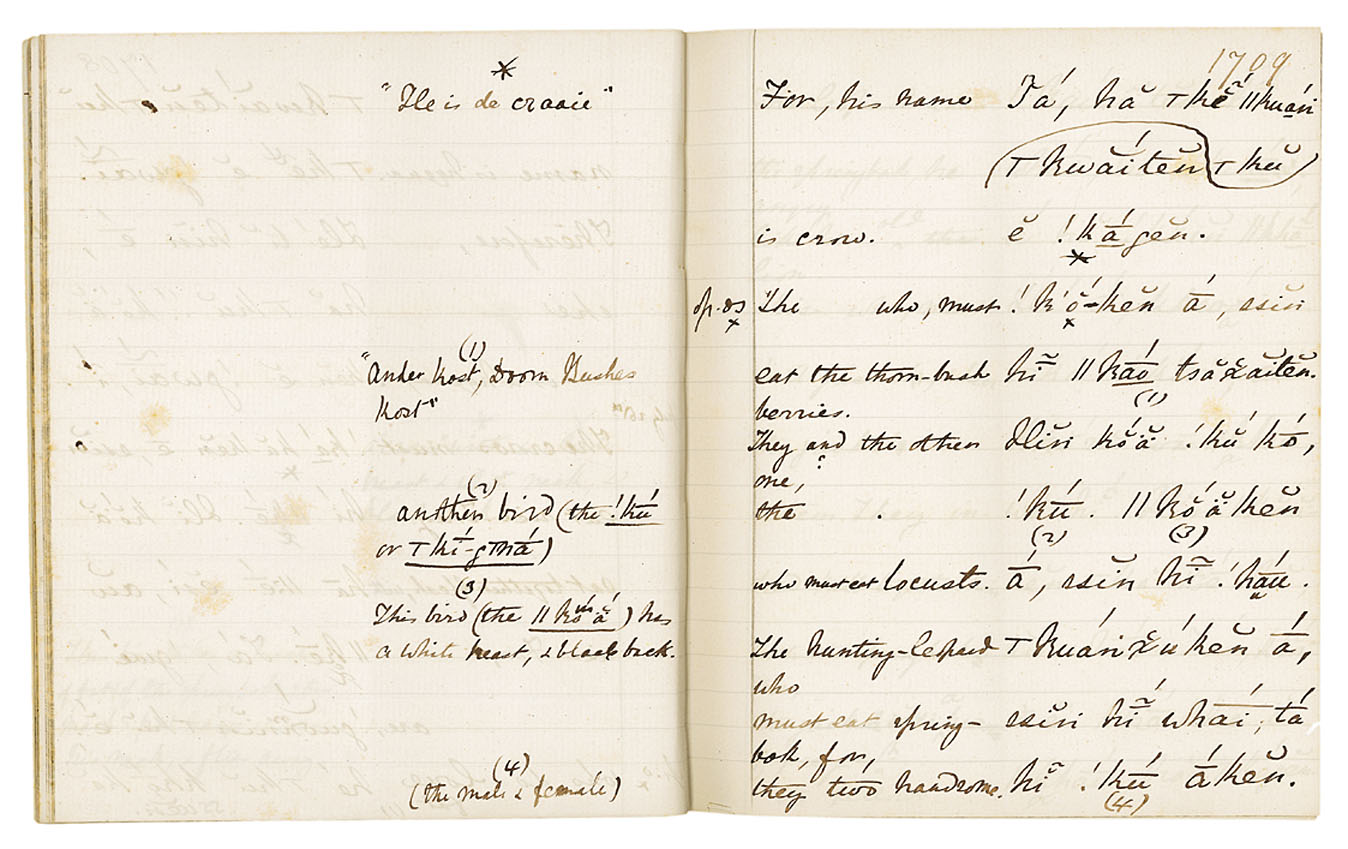 *
"He is de craaie"
(1)
"Ander kost, Doorn Bushes
Kost"
(2)
another bird (the !kū́
or ⊤kī́-gmá)
(3)
This bird (the ||kó̆ā̆) has
a white breast, & black back.
(4)
(the male & female)
1709
For, his name Tá, hă ⊤kḗ̆ ||kuá̱ri
(⊤kwắitĕn ⊤kŭ)
is crow. ĕ !ká̱gĕn.
*
The who, must !kṓ̆-kĕn ā́, ssĭn
x x
eat the thorn-bush hĭ̃ ||kā́o tsăx̆ăitĕn.
berries. (1)
They and the other Hĭn kó̆ă !kŭ kó,
one,
the . !kū́. ||kó̆ăkĕn
(2) (3)
who must eat locusts. ā́, ssĭn hĭ̃ !kā́u.
The hunting-leopard ⊤kuárix̆úkĕn ā́,
who
must eat spring- ssĭn hĭ̃ whāí, tá
bok, for,
they two handsome. hĭ̃ !kū́ ákĕn.
(4)